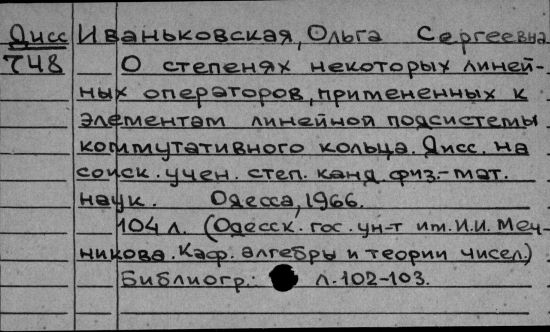 Дисс Иваньковская, Ольга Сергеевна
748 О степенях некоторых линей-
ных операторов, примененных к
элементам линейной подсистемы
коммутативного кольца. Дисс. на
соиск. учен. степ. канд физ.-мат.
наук. Одесса, 1966.
104 л. (Одесск. гос. ун-т им. И.И. Меч-
никова. Каф. алгебры и теории чисел.)
Библиогр.: л. 102-103.